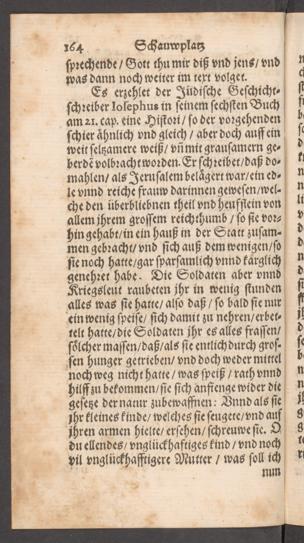 164 Schauwplatz
sprechende / Gott thu mir diß vnd jens / vnd
was dann noch weiter im text volget.
Es erzehlet der Jüdische Geschicht-
schreiber Iosephus in seinem sechsten Buch
am 21. cap. eine Histori / so der vorgehenden
schier ähnlich vnd gleich / aber doch auff ein
weit seltzamere weiß / vñ mit grausamern ge-
berdē volbracht worden. Er schreibet / daß do-
mahlen / als Jerusalem belägert war / ein ed-
le vnnd reiche frauw darinnen gewesen / wel-
che den überbliebnen theil vnd heufflein von
allem jhrem grossem reichthumb / so sie vor-
hin gehabt / in ein hauß in der Statt zusam-
men gebracht / vnd sich auß dem wenigen / so
sie noch hatte / gar sparsamlich vnnd kärglich
genehret habe. Die Soldaten aber vnnd
Kriegsleut raubeten jhr in wenig stunden
alles was sie hatte / also daß / so bald sie nur
ein wenig speise / sich damit zu nehren / erbet-
telt hatte / die Soldaten jhr es alles frassen /
sölcher massen / daß / als sie entlich durch gros-
sen hunger getrieben / vnd doch weder mittel
noch weg nicht hatte / was speiß / rath vnnd
hilff zu bekommen / sie sich anfienge wider die
gesetze der natur zubewaffnen: Vnnd als sie
jhr kleines kinde / welches sie seugete / vnd auf
jhren armen hielte / ersehen / schreuwe sie. O
du ellendes / vnglückhafftiges kind / vnd noch
vil vnglückhafftigere Mutter / was soll ich
nun